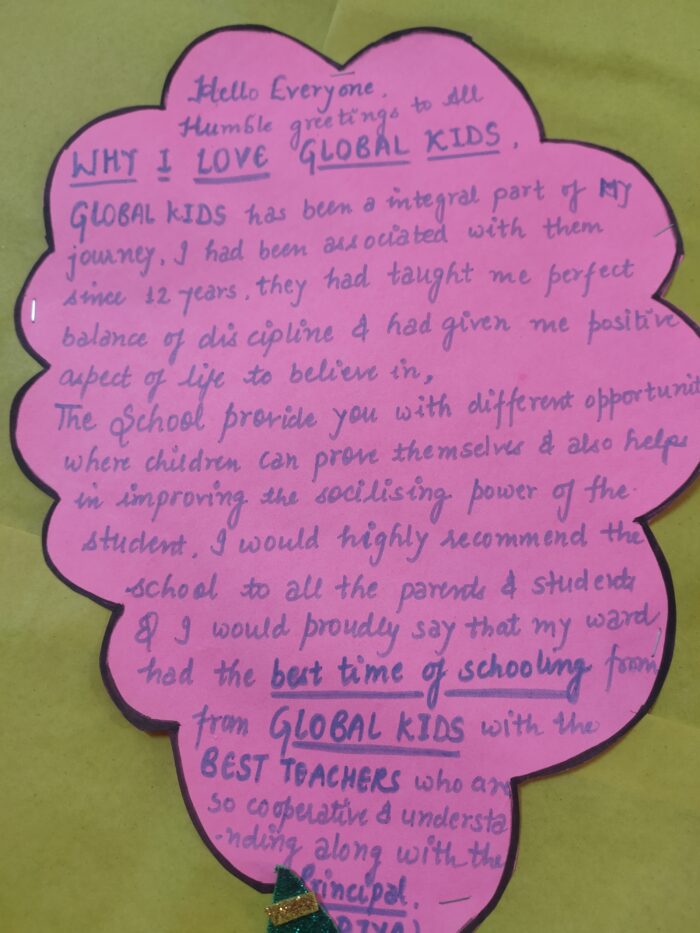 Hello Everyone.
Humble greetings to all
WHY I LOVE GLOBAL KIDS.
GLOBAL KIDS has been a integral part of MY
journey. I had been associated with them
since 12 years, they had taught me perfect
balance of discipline & had given me positive
aspect of life to believe in,
The School provide you with different opportunit
where children can prove themselves & also helps
in improving the socilising power of the
student. I would highly recommend the
school to all the parents & students
& I would proudly say that my ward
had the best time of schooling from
from GLOBAL KIDS with the
BEST TEACHERS who are
so cooperative & understa
-nding along with the
Principal.